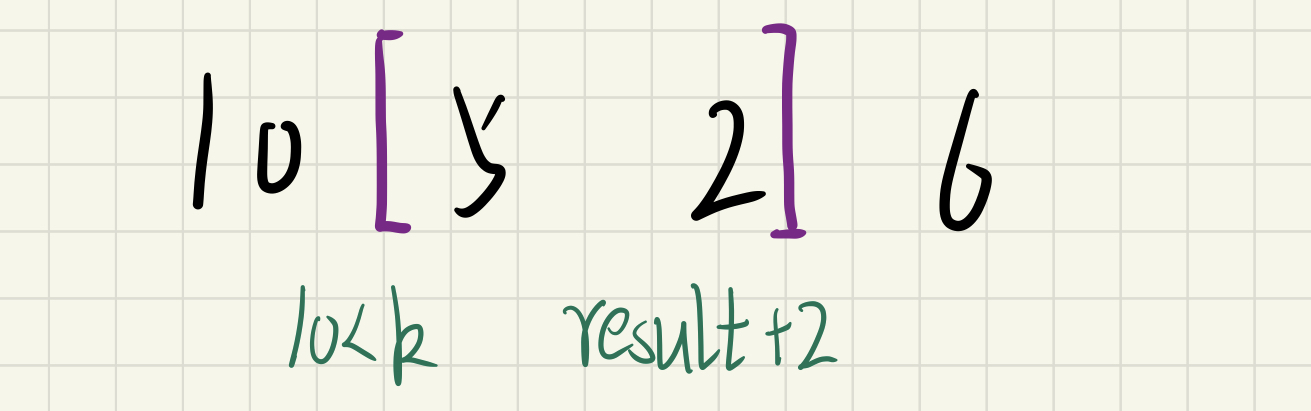 10 [5 2] 6
10<k result+2